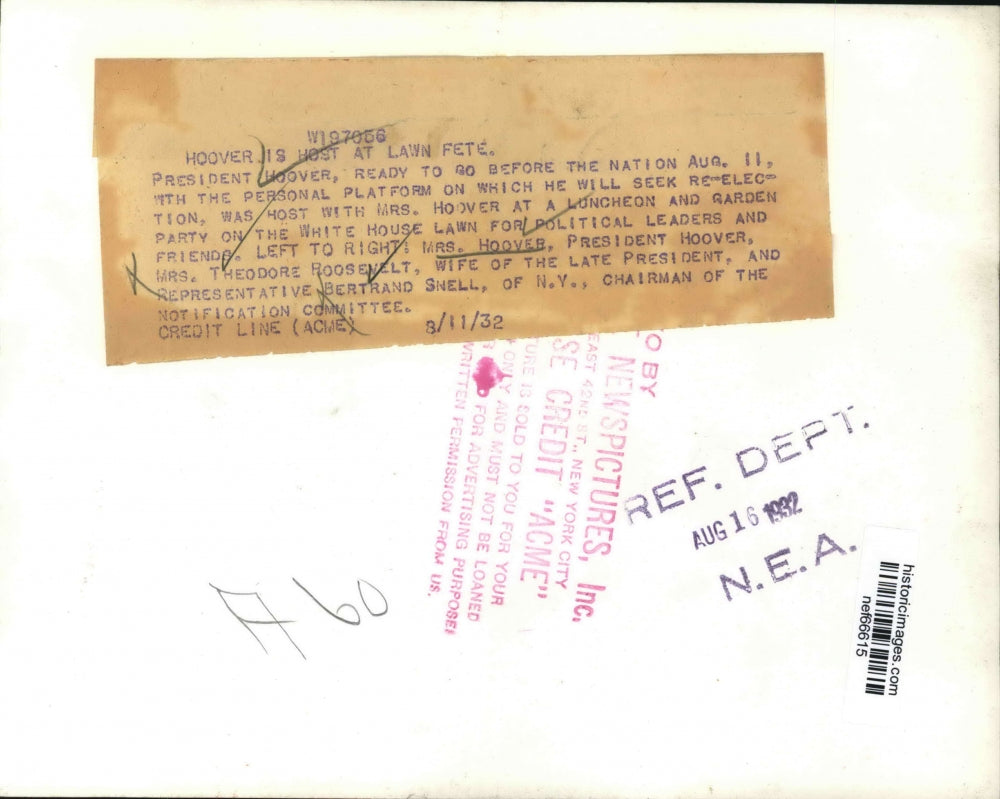 W197056
HOOVER IS HOST AT LAWN FETE.
PRESIDENT HOOVER, READY TO GO BEFORE THE NATION AUG. 11,
WTH THE PERSONAL PLATFORM ON WHICH HE WILL SEEK RE-ELEC-
TION, WAS HOST WITH MRS. HOOVER AT A LUNCHEON AND GARDEN
PARTY ON THE WHITE HOUSE LAWN FOR POLITICAL LEADERS AND
FRIENDS. LEFT TO RIGHT: MRS. HOOVER, PRESIDENT HOOVER,
MRS. THEODORE ROOSEVELT, WIFE OF THE LATE PRESIDENT, AND
REPRESENTATIVE BERTRAND SNELL, OF N.Y., CHAIRMAN OF THE
NOTIFICATION COMMITTEE.
CREDIT LINE (ACME) 8/11/32
O BY
NEWSPICTURES, Inc.
EAST 42ND ST., NEW YORK CITY
SE CREDIT "ACME"
TURE IS SOLD TO YOU FOR YOUR
ONLY AND MUST NOT BE LOANED
FOR ADVERTISING PURPOSES
WRITTEN PERMISSION FROM US.
REF. DEPT.
AUG 16 1932
N.E.A.
A 60
historicimages.com
nef66615